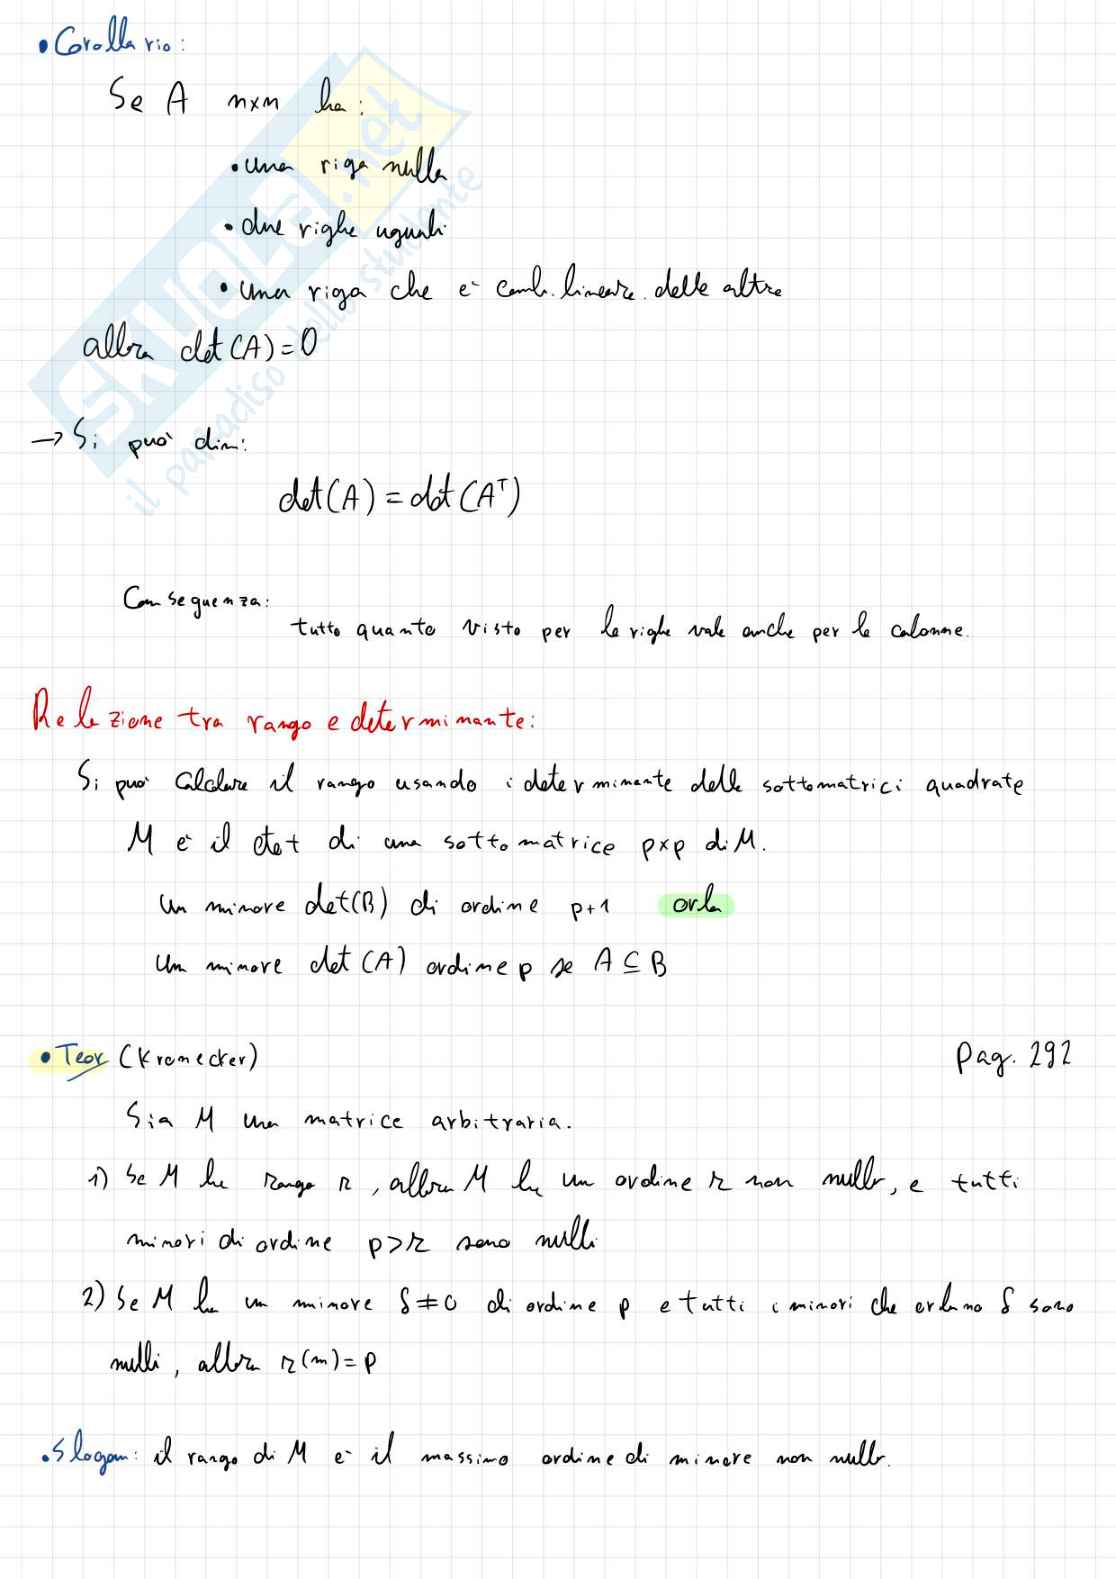 • Corollario:
Se A n×n ha:
• una riga nulla
• due righe uguali
• una riga che è comb. lineare delle altre
allora det(A)=0
→ Si può dim:
det(A) = det(Aᵀ)
Conseguenza:
tutto quanto visto per le righe vale anche per le colonne.
Relazione tra rango e determinante:
Si può calcolare il rango usando i determinante delle sottomatrici quadrate
M è il det di una sottomatrice p×p di M.
Un minore det(B) di ordine p+1 orla
Un minore det(A) ordine p se A ⊆ B
• Teor (Kronecker) Pag. 292
Sia M una matrice arbitraria.
1) Se M ha rango r, allora M ha un ordine r non nullo, e tutti
minori di ordine p>r sono nulli
2) Se M ha un minore δ≠0 di ordine p e tutti i minori che orlano δ sono
nulli, allora r(m)=p
• Slogan: il rango di M è il massimo ordine di minore non nullo.
SKUOLA.net
il paradiso dello studente